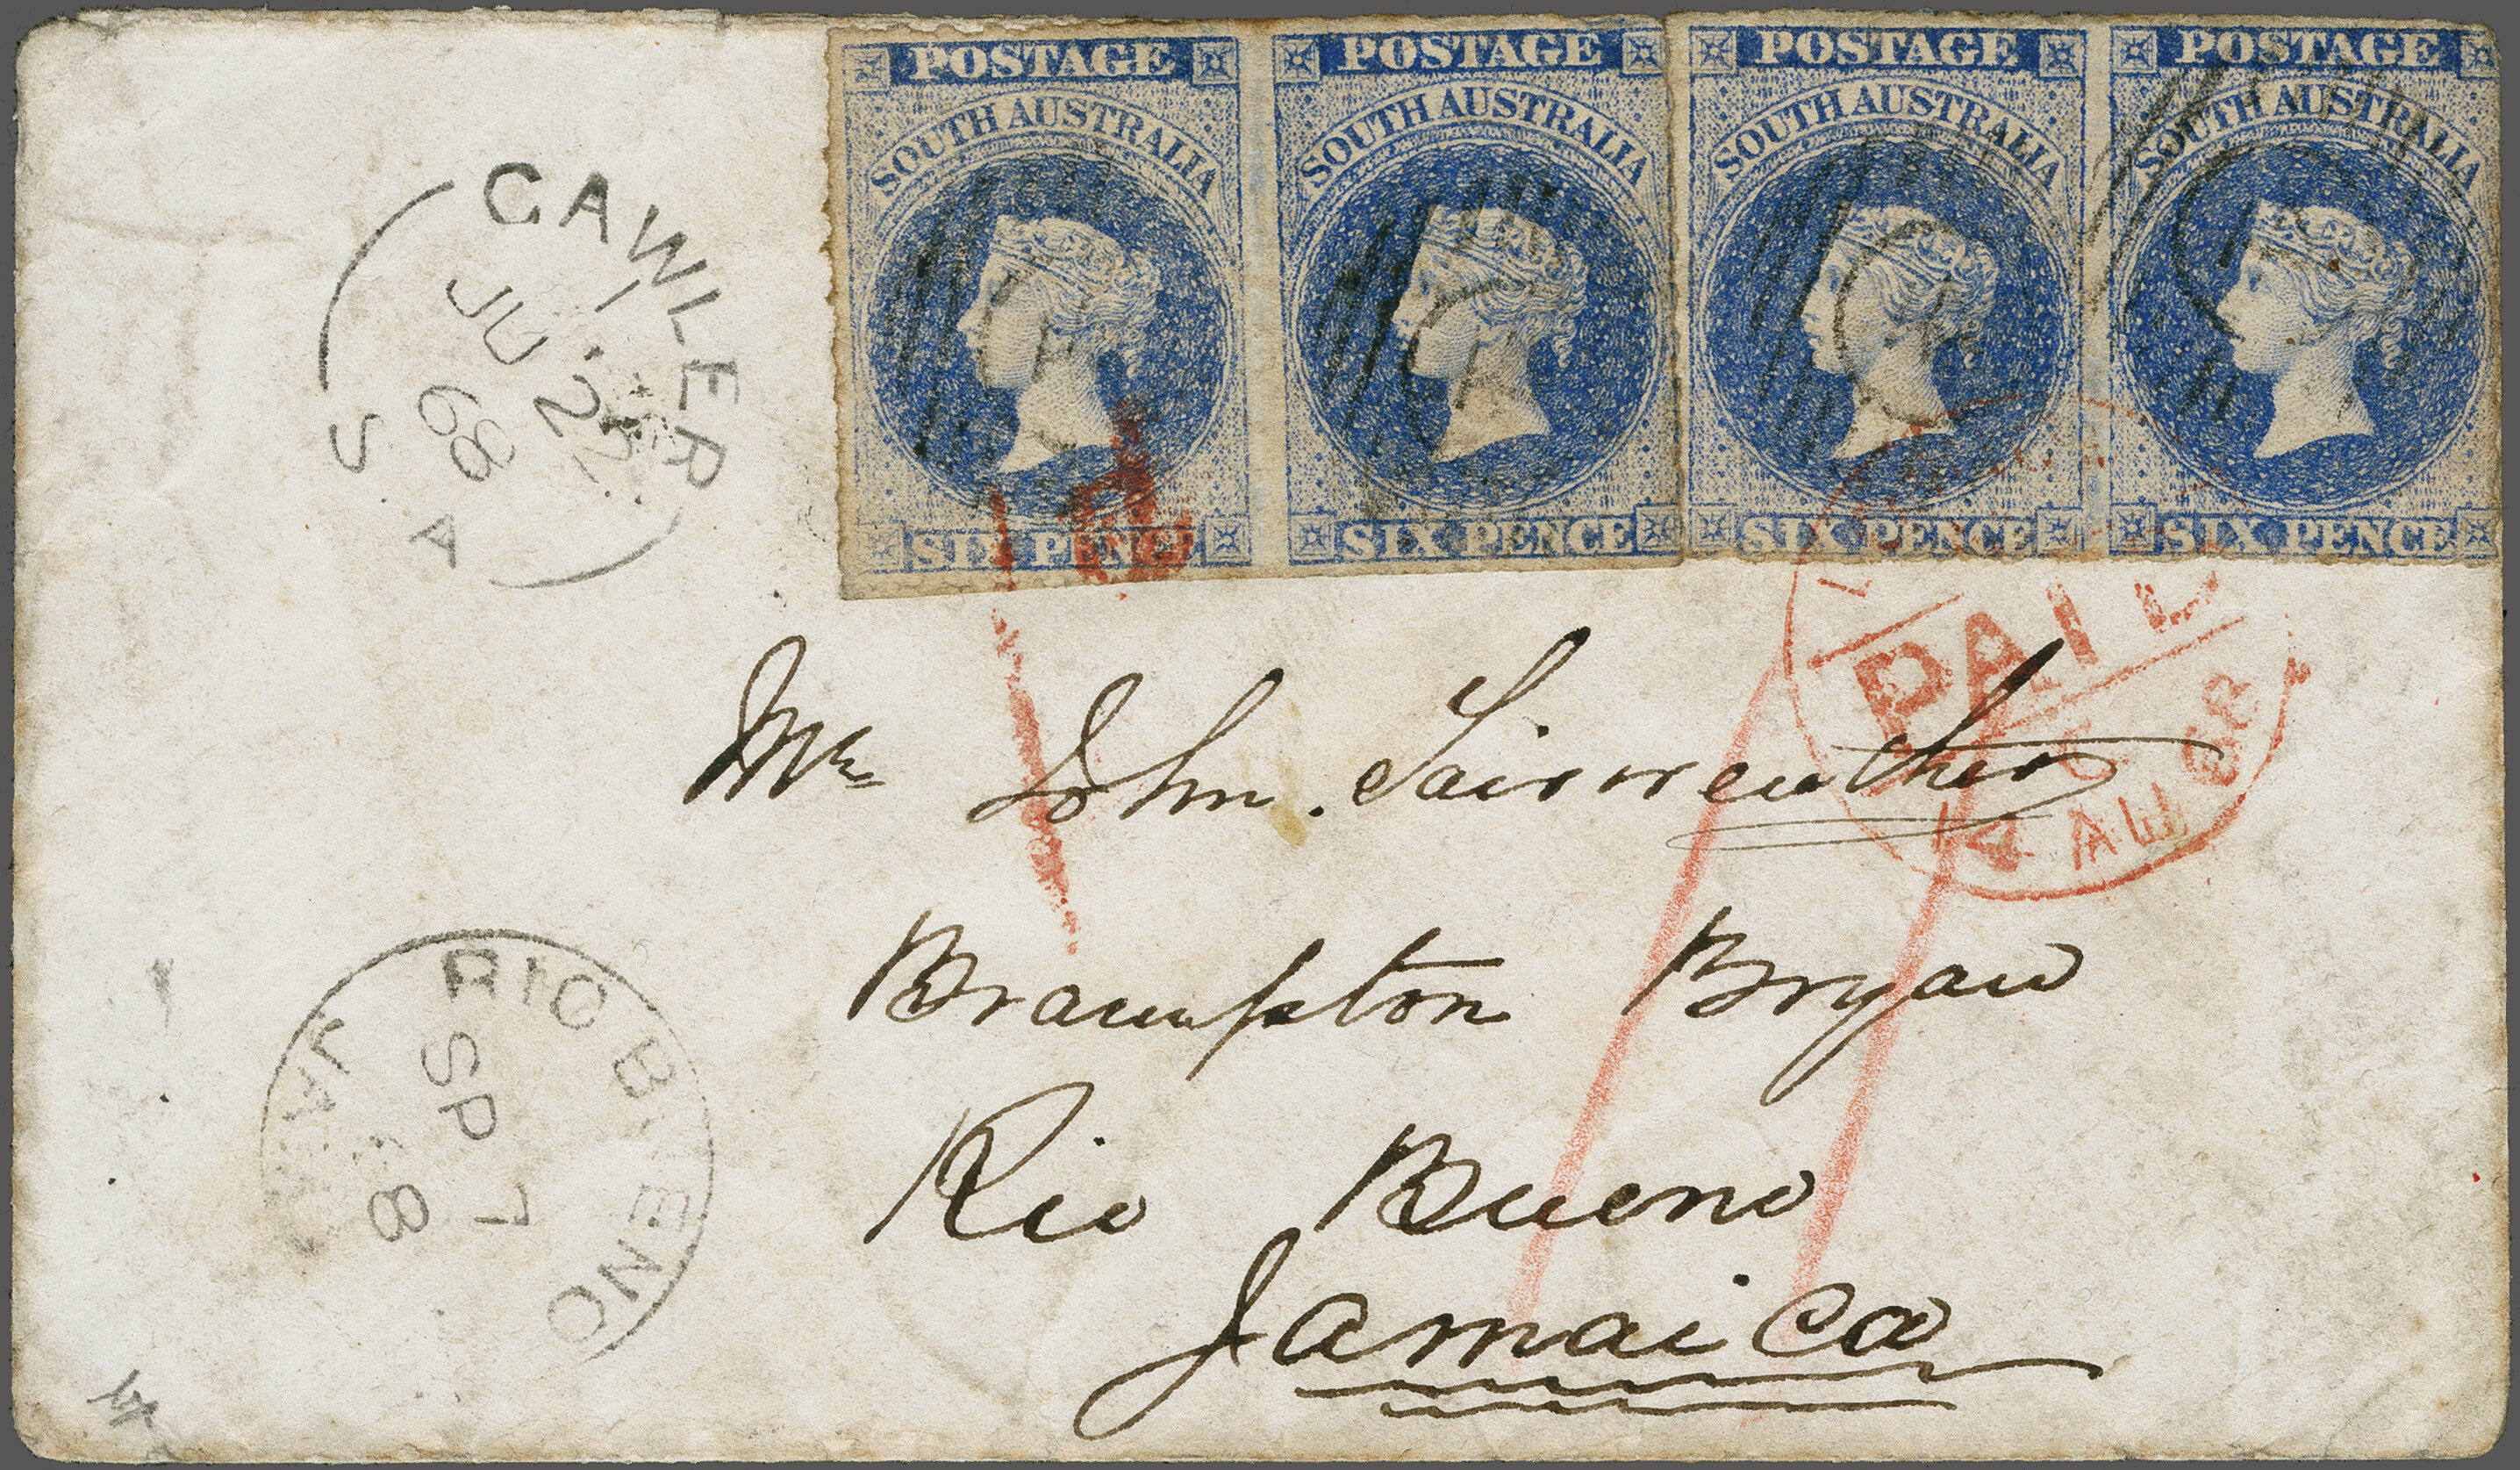 POSTAGE POSTAGE POSTAGE POSTAGE
SOUTH AUSTRALIA SOUTH AUSTRALIA SOUTH AUSTRALIA SOUTH AUSTRALIA
SIX PENCE SIX PENCE SIX PENCE SIX PENCE
GAWLER
JU 22
68
S A
PAID
14 AU 68
Mr John Fairweather
Brampton Bryan
Rio Bueno
Jamaica
RIO BUENO
SP 7
JA